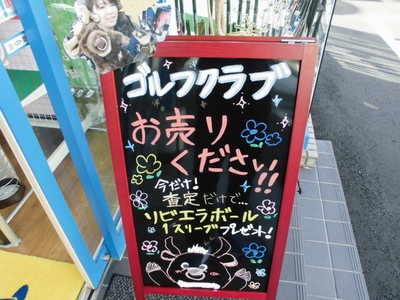 ゴルフクラブ
お売り
ください!!
今だけ!
査定だけで…
リビエラボール
1スリーブプレゼント!